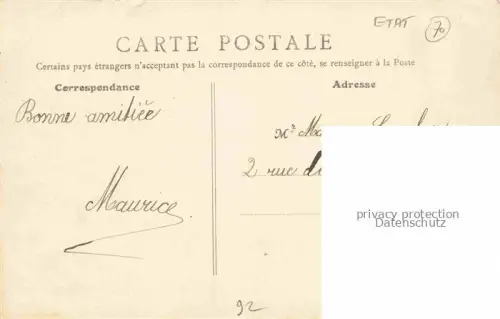 ETAT 70
CARTE POSTALE
Certains pays étrangers n'acceptant pas la correspondance de ce côté, se renseigner à la Poste
Correspondance
Adresse
Bonne amitiée
Mr
2 rue
Maurice
privacy protection
Datenschutz
92